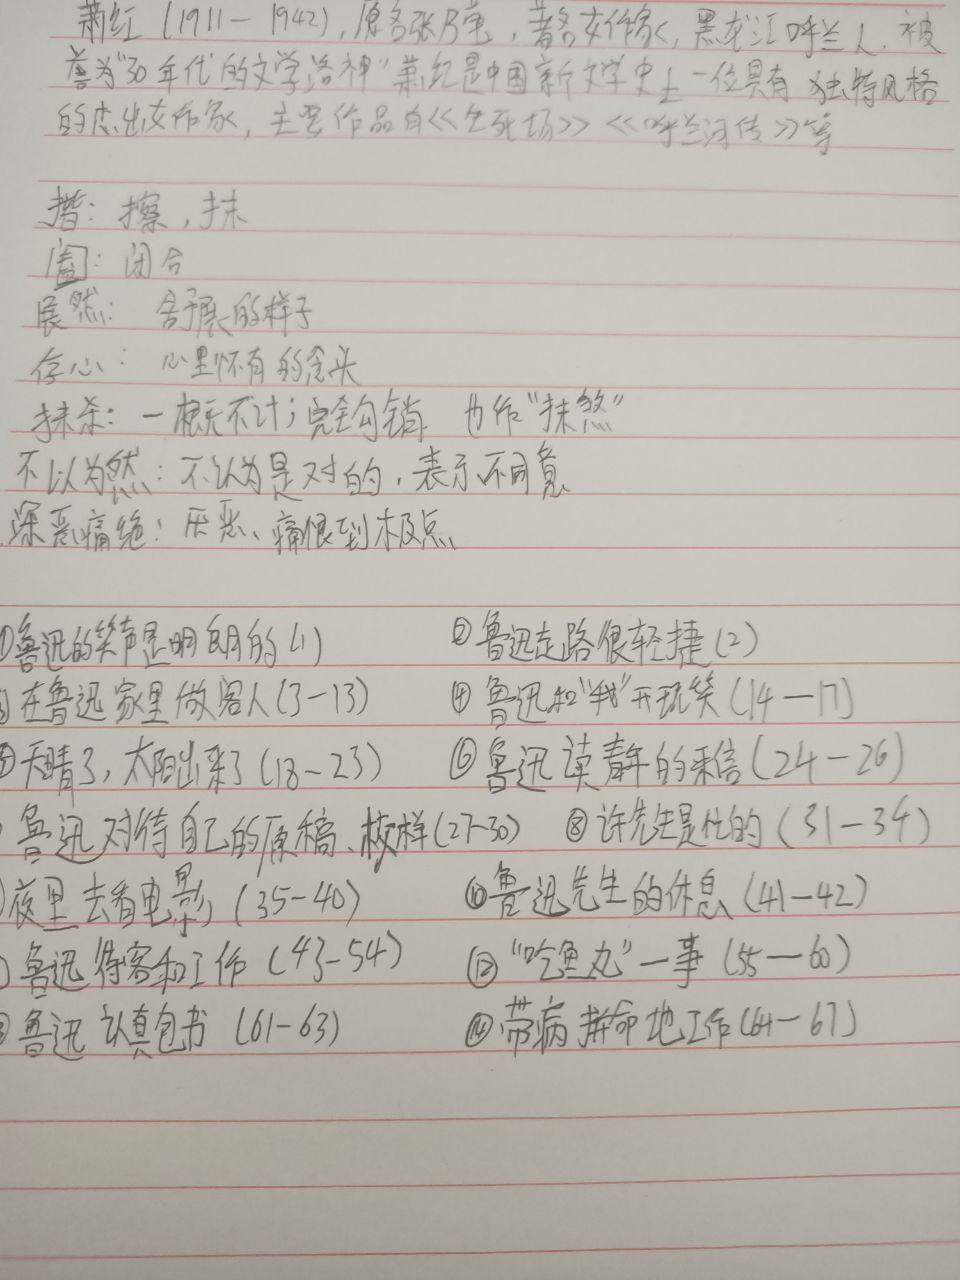 萧红（1911－1942），原名张乃莹，著名女作家，黑龙江呼兰人，被
誉为"30年代的文学洛神"萧红是中国新文学史上一位具有独特风格
的杰出女作家，主要作品有《生死场》《呼兰河传》等
揩：擦，抹
阖：闭合
展然：舒展的样子
存心：心里怀有的念头
抹杀：一概不计；完全勾销 也作"抹煞"
不以为然：不认为是对的，表示不同意
深恶痛绝：厌恶、痛恨到极点
①鲁迅的笑声是明朗的（1） ②鲁迅走路很轻捷（2）
③在鲁迅家里做客人（3－13） ④鲁迅和"我"开玩笑（14－17）
⑤天晴了，太阳出来了（18－23） ⑥鲁迅读青年的来信（24－26）
鲁迅对待自己的原稿、校样（27－30） ⑧许先生是忙的（31－34）
夜里去看电影（35－40） ⑩鲁迅先生的休息（41－42）
鲁迅待客和工作（43－54） ⑫"吃鱼丸"一事（55－60）
鲁迅认真包书（61－63） ⑭带病拼命地工作（64－67）